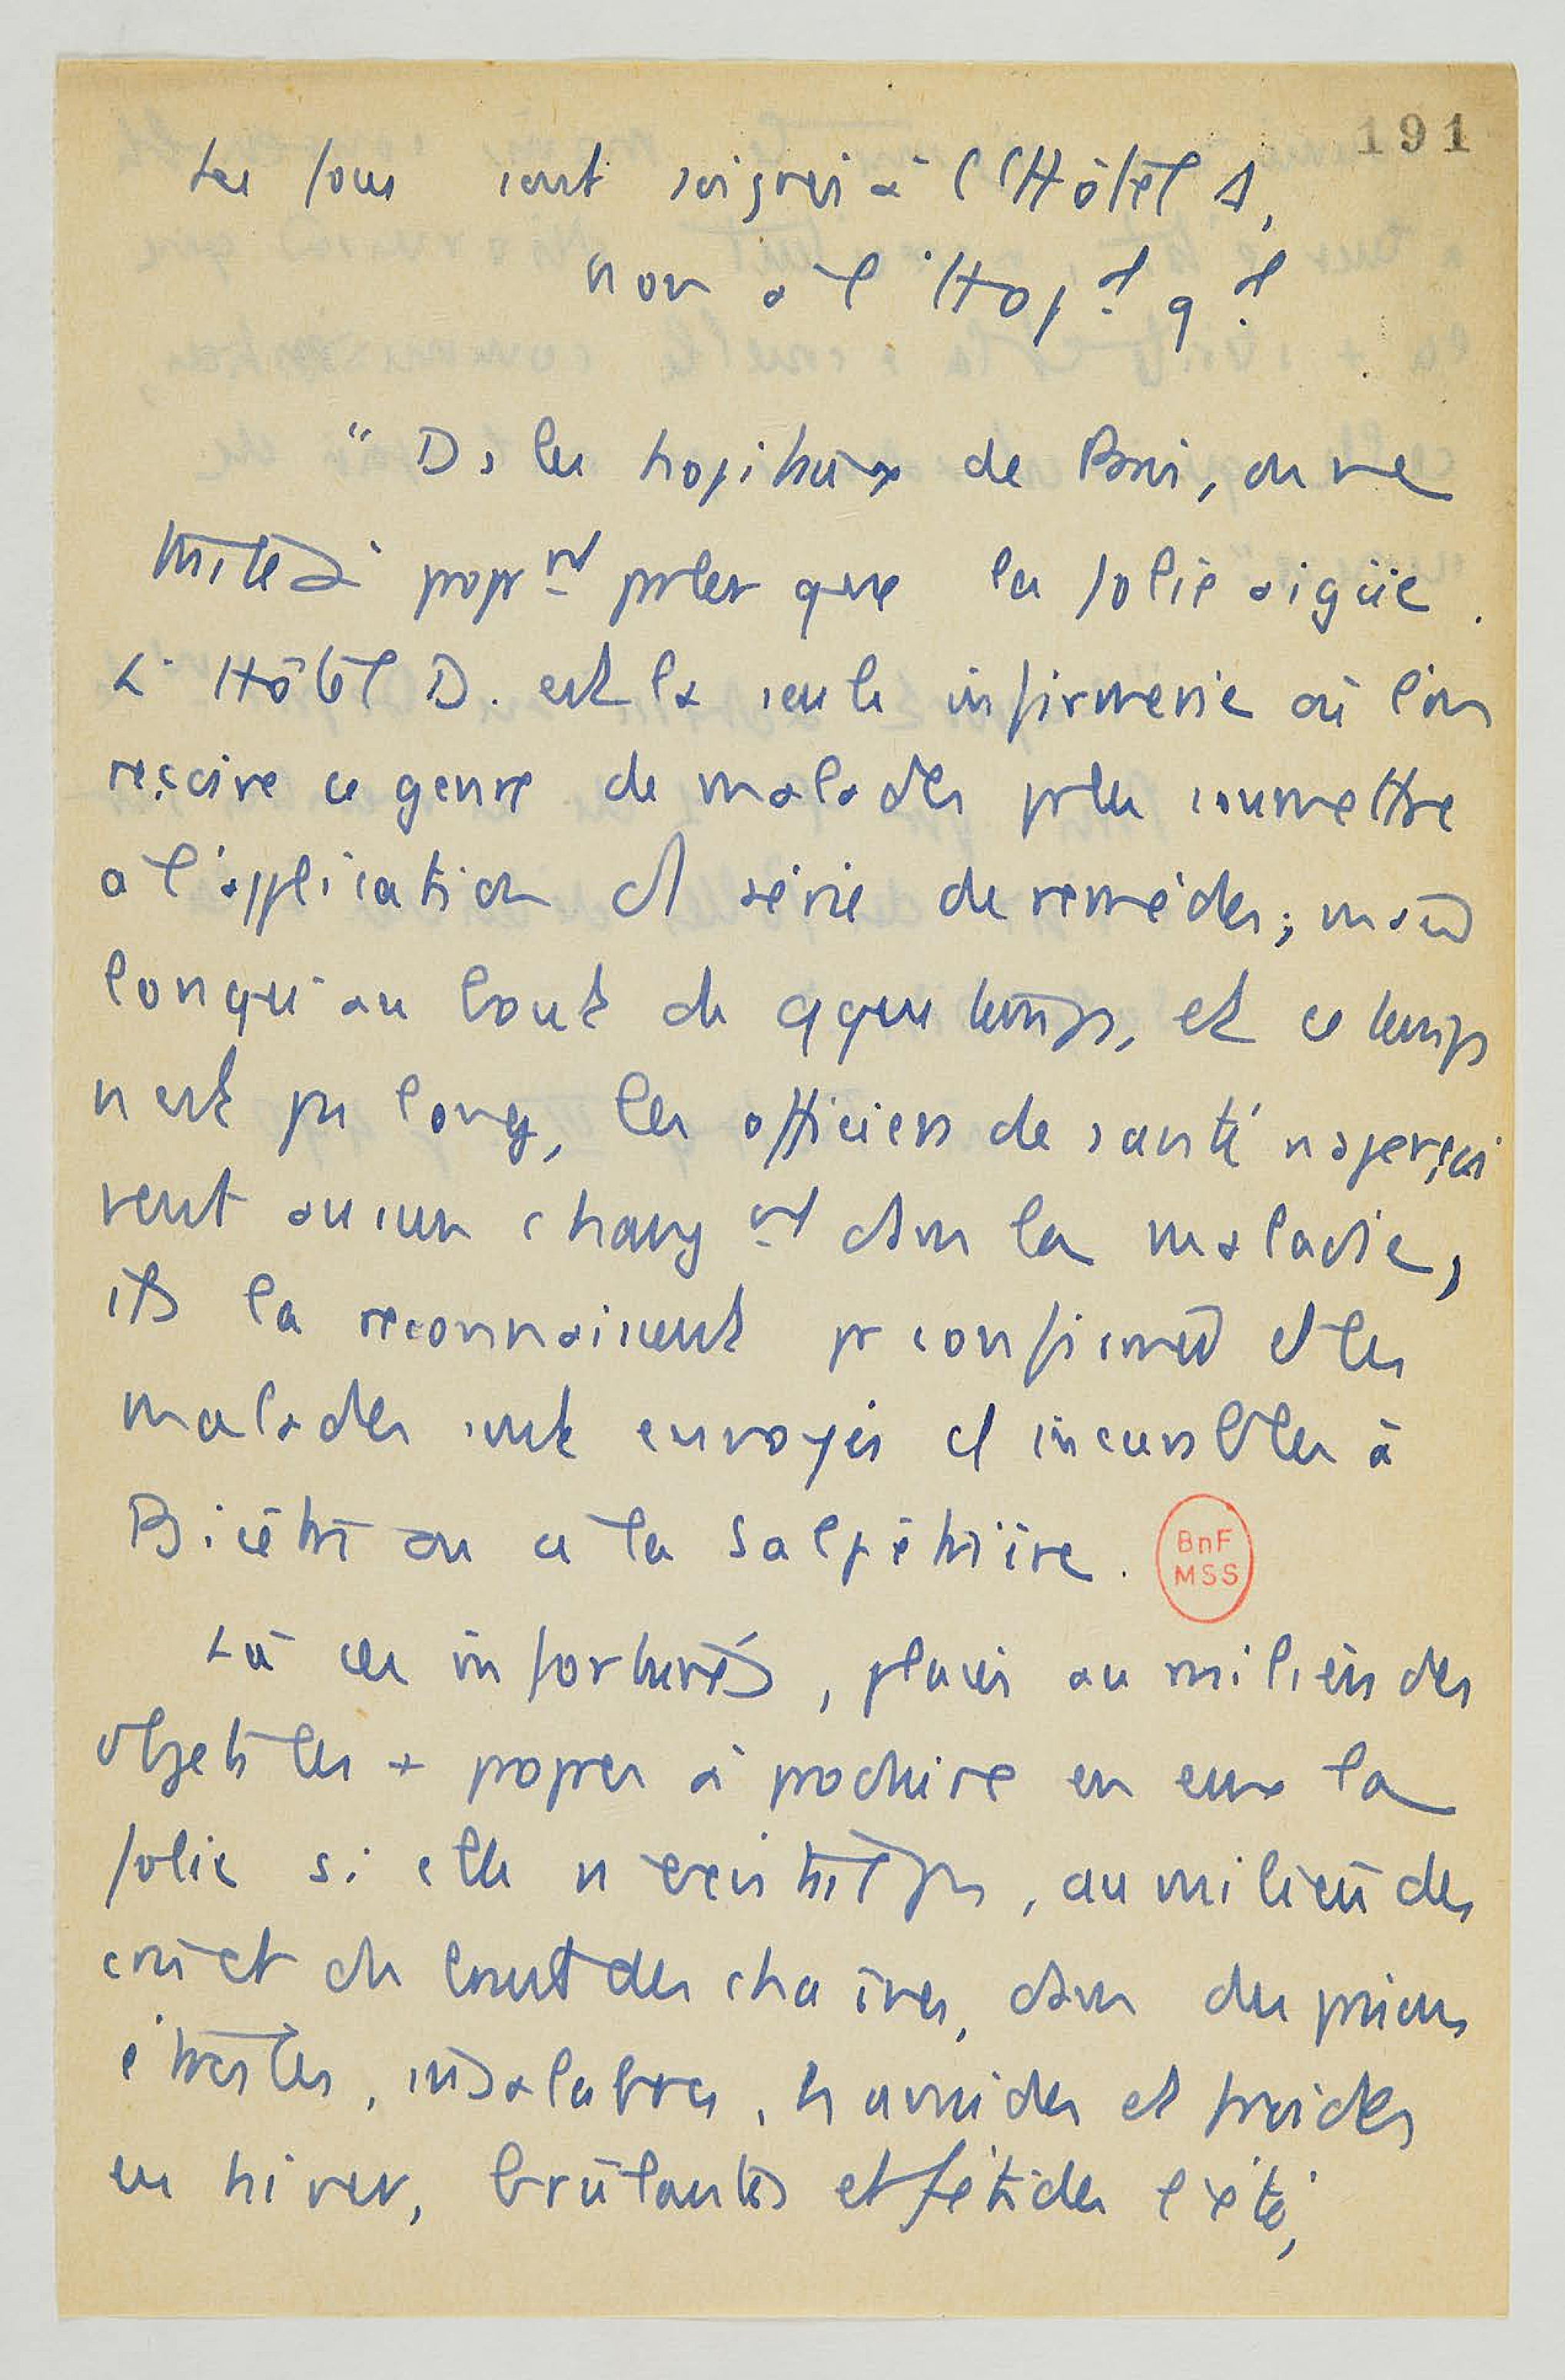 191
Les fous sont soignés à l'Hôtel D,
non à l'Hopal gal
" Ds les hopitaux de Paris, on ne
traite à proprnt parler que la folie aigüe.
L'Hôtel D. est la seule infirmerie où l'on
reçoive ce genre de malades pr les soumettre
a l'application d'1 série de remèdes; mais
lorsqu'au bout de qques temps, et ce temps
n'est pas long, les officiers de santé n'aperçoi
vent aucun changnt dans la maladie,
ils la reconnaissent pr confirmée et les
malades sont envoyés et incurables à
Bicêtre ou a la Salpêtrière.
BnF
MSS
Là ces infortunés, placés au milieu des
objets les + propres à produire en eux la
folie si elle n'existait pas, au milieu des
cris et du bruit des chaînes, dans des prisons
étroites, insalubres, humides et froides
en hiver, brûlantes et fétides l'été,